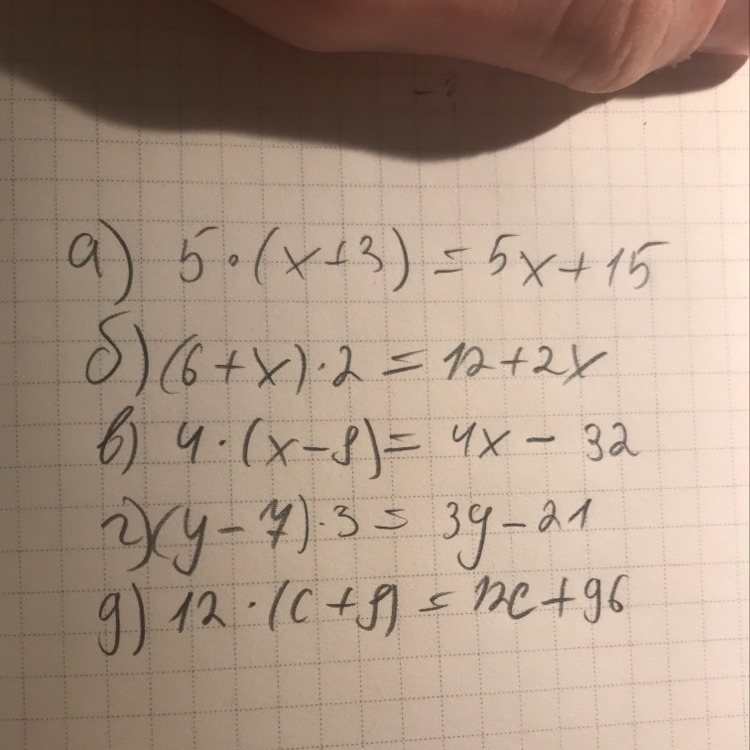 а) 5·(x+3) = 5x+15
б) (6+x)·2 = 12+2x
в) 4·(x-8) = 4x - 32
г) (y-7)·3 = 3y-21
д) 12·(c+8) = 12c+96